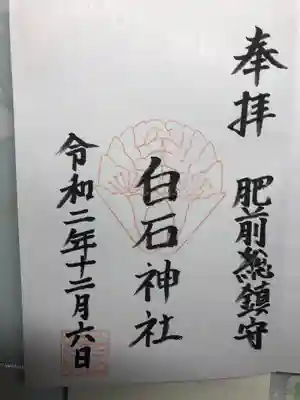 奉拝
肥前總鎮守
白石神社
令和二年十二月六日